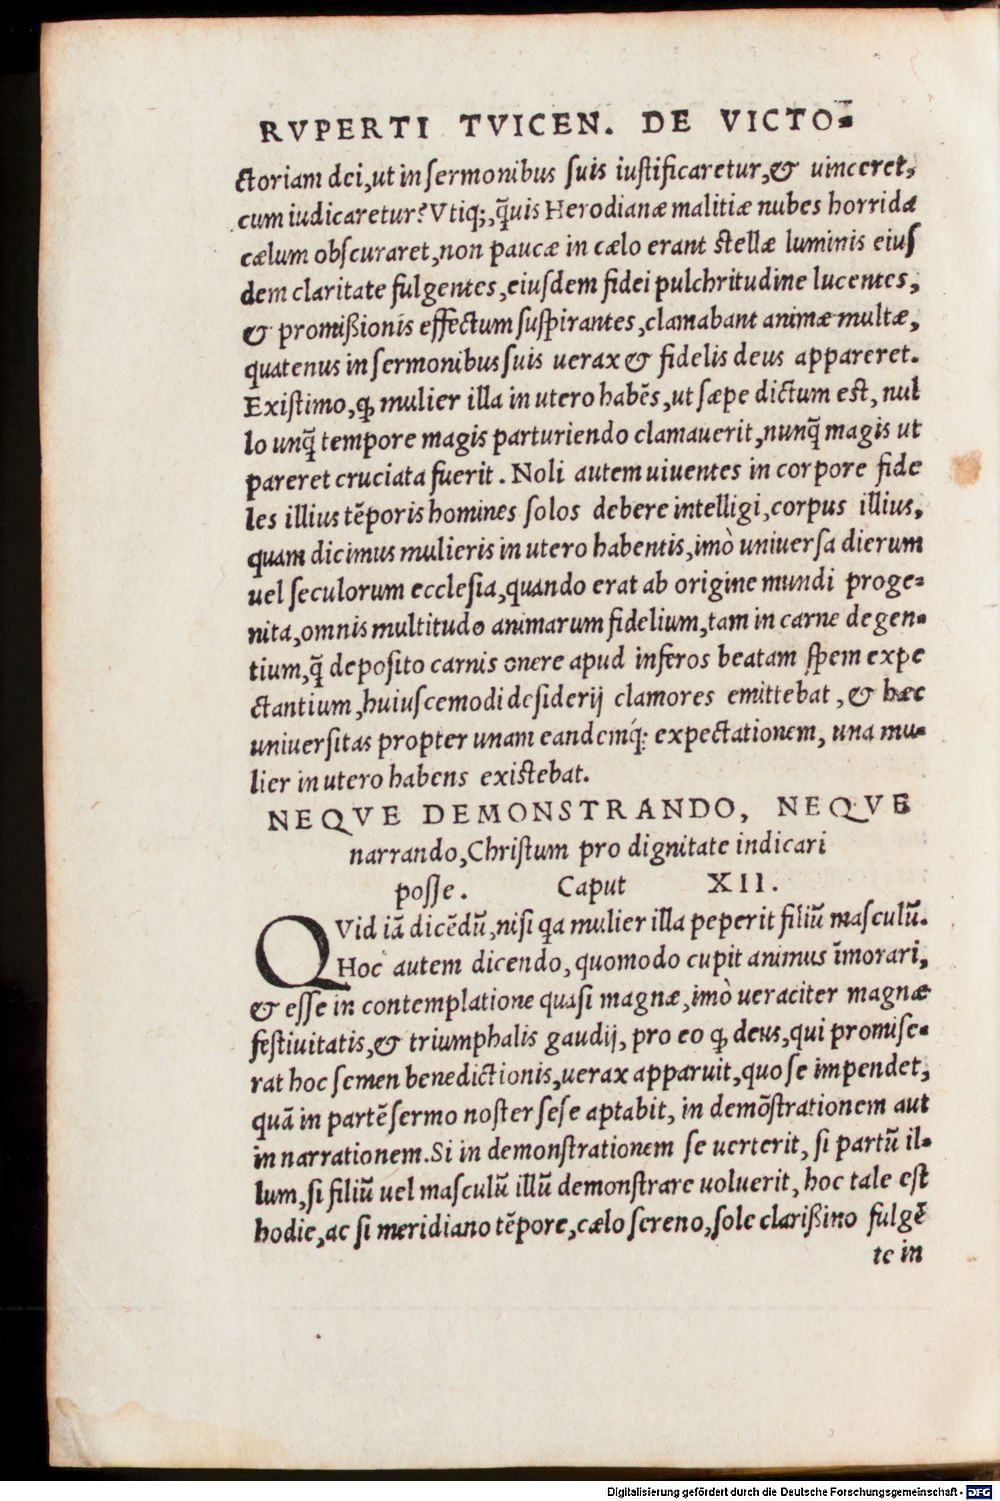 RVPERTI TVICEN. DE VICTO-
ctoriam dei, ut in sermonibus suis iustificaretur, & uinceret,
cum iudicaretur? Vtiq;, q̃uis Herodianæ malitiæ nubes horrida
cælum obscuraret, non paucæ in cælo erant stellæ luminis eius
dem claritate fulgentes, eiusdem fidei pulchritudine lucentes,
& promißionis effectum suspirantes, clamabant animæ multæ,
quatenus in sermonibus suis uerax & fidelis deus appareret.
Existimo, ꝙ mulier illa in utero habẽs, ut sæpe dictum est, nul
lo unq̃ tempore magis parturiendo clamauerit, nunq̃ magis ut
pareret cruciata fuerit. Noli autem uiuentes in corpore fide
les illius tẽporis homines solos debere intelligi, corpus illius,
quam dicimus mulieris in utero habentis, imò uniuersa dierum
uel seculorum ecclesia, quando erat ab origine mundi proge-
nita, omnis multitudo animarum fidelium, tam in carne degen-
tium, q̃ deposito carnis onere apud inferos beatam spem expe
ctantium, huiuscemodi desiderij clamores emittebat, & hæc
uniuersitas propter unam eandemq́; expectationem, una mu-
lier in utero habens existebat.
NEQVE DEMONSTRANDO, NEQVE
narrando, Christum pro dignitate indicari
posse. Caput XII.
QVid iã dicẽdũ, nisi qa mulier illa peperit filiũ masculũ.
Hoc autem dicendo, quomodo cupit animus ĩmorari,
& esse in contemplatione quasi magnæ, imò ueraciter magnæ
festiuitatis, & triumphalis gaudij, pro eo ꝙ deus, qui promise-
rat hoc semen benedictionis, uerax apparuit, quo se impendet,
quã in partẽ sermo noster sese aptabit, in demõstrationem aut
in narrationem. Si in demonstrationem se uerterit, si partũ il-
lum, si filiũ uel masculũ illũ demonstrare uoluerit, hoc tale est
hodie, ac si meridiano tẽpore, cælo sereno, sole clarißimo fulgẽ
te in
Digitalisierung gefördert durch die Deutsche Forschungsgemeinschaft - DFG